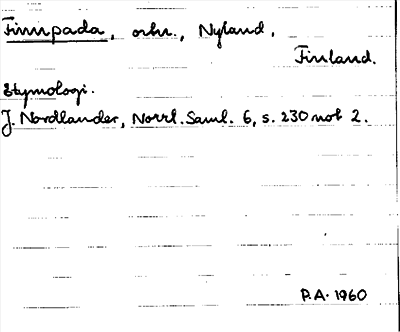 Finnpada, ortn., Nyland,
Finland.
Etymologi.
J. Nordlander, Norrl. Saml. 6, s. 230 not 2.
P.A. 1960